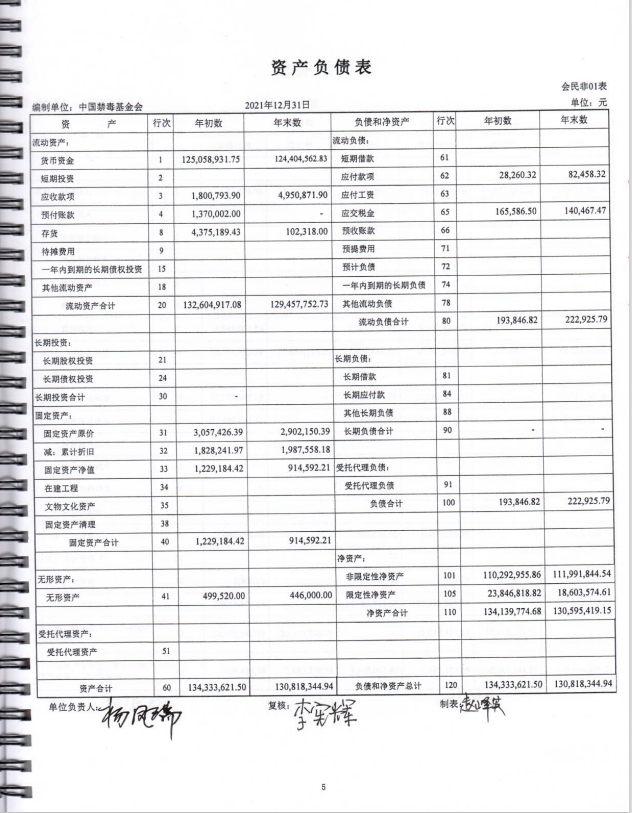 资产负债表
会民非01表
编制单位：中国禁毒基金会 2021年12月31日 单位：元
资 产 行次 年初数 年末数 负债和净资产 行次 年初数 年末数
流动资产： 流动负债：
货币资金 1 125,058,931.75 124,404,562.83 短期借款 61
短期投资 2 应付款项 62 28,260.32 82,458.32
应收款项 3 1,800,793.90 4,950,871.90 应付工资 63
预付账款 4 1,370,002.00 - 应交税金 65 165,586.50 140,467.47
存货 8 4,375,189.43 102,318.00 预收账款 66
待摊费用 9 预提费用 71
一年内到期的长期债权投资 15 预计负债 72
其他流动资产 18 一年内到期的长期负债 74
流动资产合计 20 132,604,917.08 129,457,752.73 其他流动负债 78
流动负债合计 80 193,846.82 222,925.79
长期投资：
长期股权投资 21 长期负债：
长期债权投资 24 长期借款 81
长期投资合计 30 - 长期应付款 84
固定资产： 其他长期负债 88
固定资产原价 31 3,057,426.39 2,902,150.39 长期负债合计 90 - -
减：累计折旧 32 1,828,241.97 1,987,558.18
固定资产净值 33 1,229,184.42 914,592.21 受托代理负债：
在建工程 34 受托代理负债 91
文物文化资产 35 负债合计 100 193,846.82 222,925.79
固定资产清理 38
固定资产合计 40 1,229,184.42 914,592.21
净资产：
无形资产： 非限定性净资产 101 110,292,955.86 111,991,844.54
无形资产 41 499,520.00 446,000.00 限定性净资产 105 23,846,818.82 18,603,574.61
净资产合计 110 134,139,774.68 130,595,419.15
受托代理资产：
受托代理资产 51
资产合计 60 134,333,621.50 130,818,344.94 负债和净资产总计 120 134,333,621.50 130,818,344.94
单位负责人： 杨凤瑞 复核： 李宪辉 制表：
5